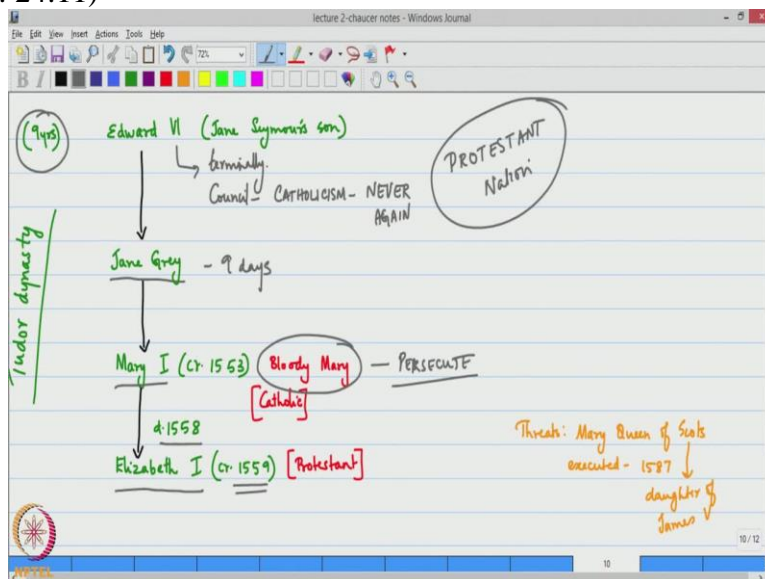 : 24:11)
lecture 2-chaucer notes - Windows Journal
File Edit View Insert Actions Tools Help
72%
B I
(9yrs) Edward VI (Jane Seymour's son)
terminally.
Council - CATHOLICISM - NEVER
AGAIN
PROTESTANT
Nation
Tudor dynasty
Jane Grey - 9 days
Mary I (cr. 1553) Bloody Mary - PERSECUTE
[Catholic]
d. 1558
Elizabeth I (cr. 1559) [Protestant]
Threats: Mary Queen of Scots
executed - 1587
daughter of
James V
10 / 12
10
NPTEL